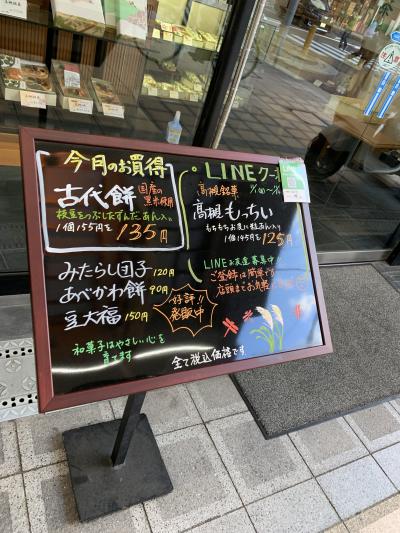 今月のお買得
古代餅 国産の黒米使用
枝豆をつぶしたずんだあん入り
1個155円を 135円
みたらし団子 120円
あべかわ餅 90円
豆大福 150円
好評!!
発販中
和菓子はやさしい心を
育てます
LINEクーポン
高槻銘菓
高槻もっちい
もちもちお麦に粒あん入り
1個145円を 125円
LINEお友達募集中!!
ご登録は簡単です
店頭までお気軽に
全て税込価格です